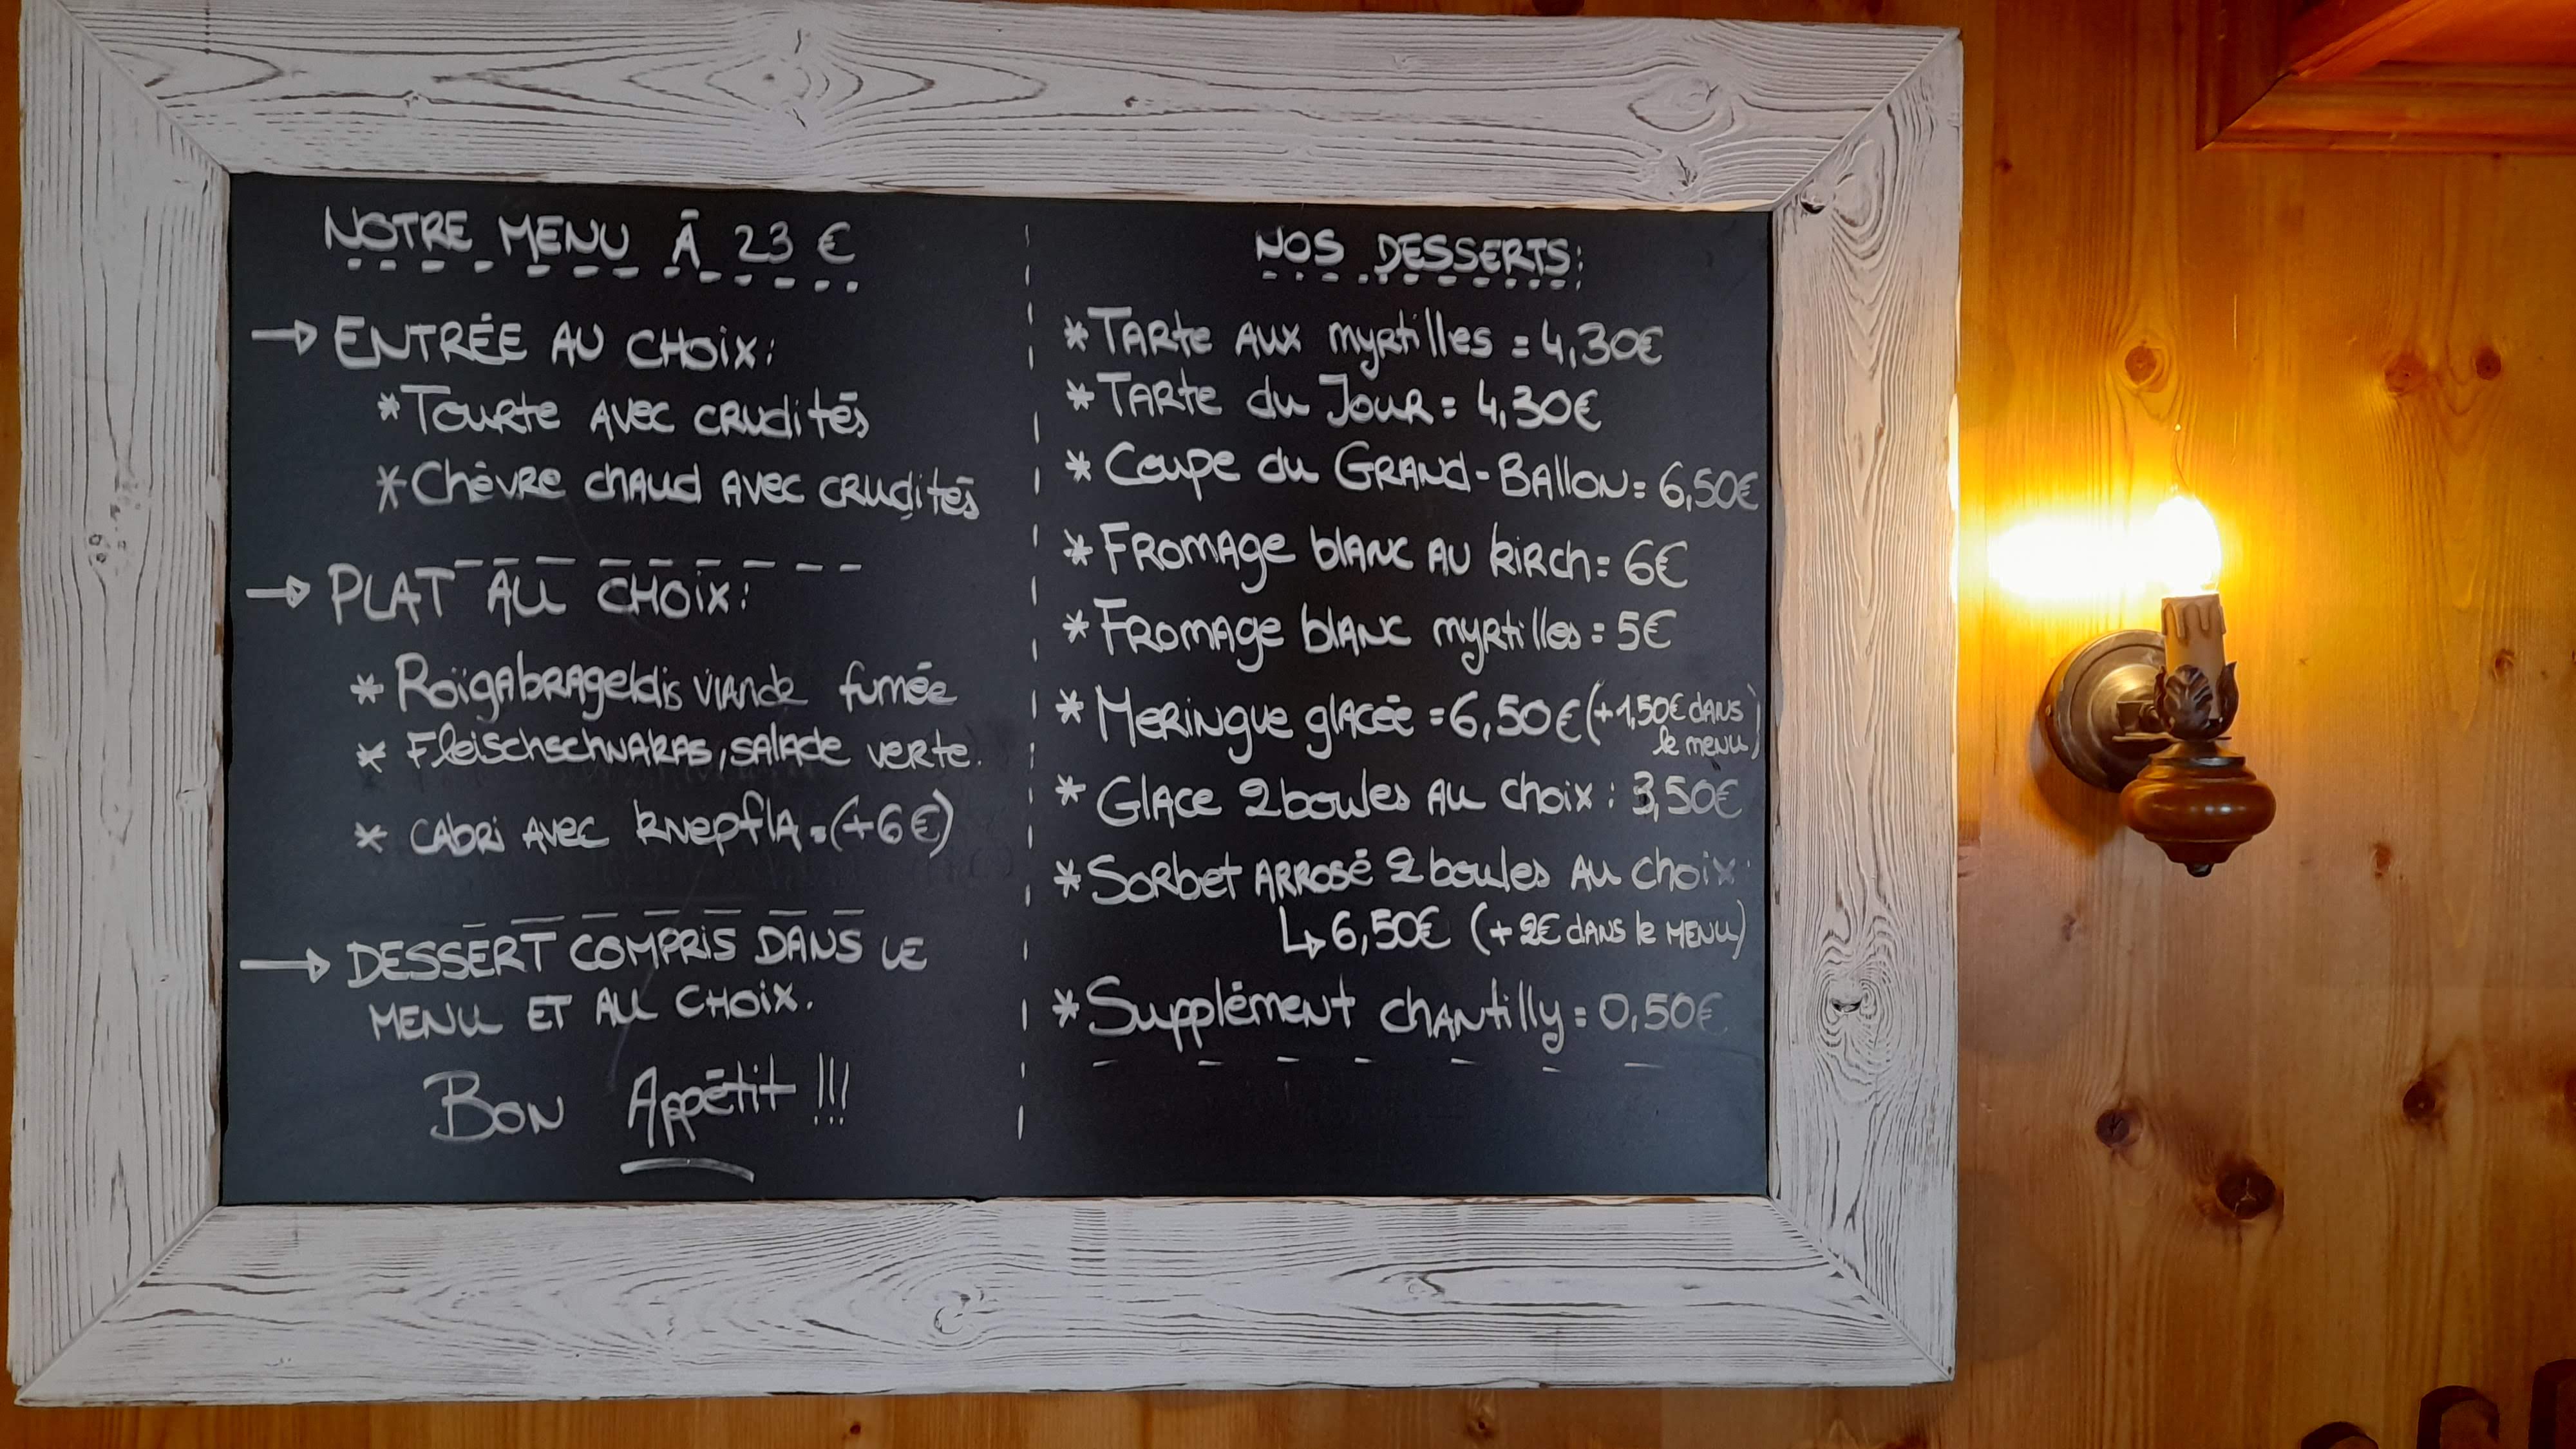 NOTRE MENU À 23 €
→ ENTRÉE AU CHOIX:
* Tourte avec crudités
* Chèvre chaud avec crudités
→ PLAT AU CHOIX:
* Roïgabrageldis viande fumée
* Fleischschnakas, salade verte.
* cabri avec knepfla = (+6€)
→ DESSERT COMPRIS DANS LE
MENU ET AU CHOIX.
Bon Appétit !!!
NOS DESSERTS:
* Tarte aux myrtilles = 4,30€
* Tarte du Jour = 4,30€
* Coupe du Grand-Ballon = 6,50€
* Fromage blanc au kirch = 6€
* Fromage blanc myrtilles = 5€
* Meringue glacée = 6,50€ (+1,50€ dans
le menu)
* Glace 2 boules au choix : 3,50€
* Sorbet arrosé 2 boules au choix :
↳ 6,50€ (+ 2€ dans le menu)
* Supplément chantilly = 0,50€